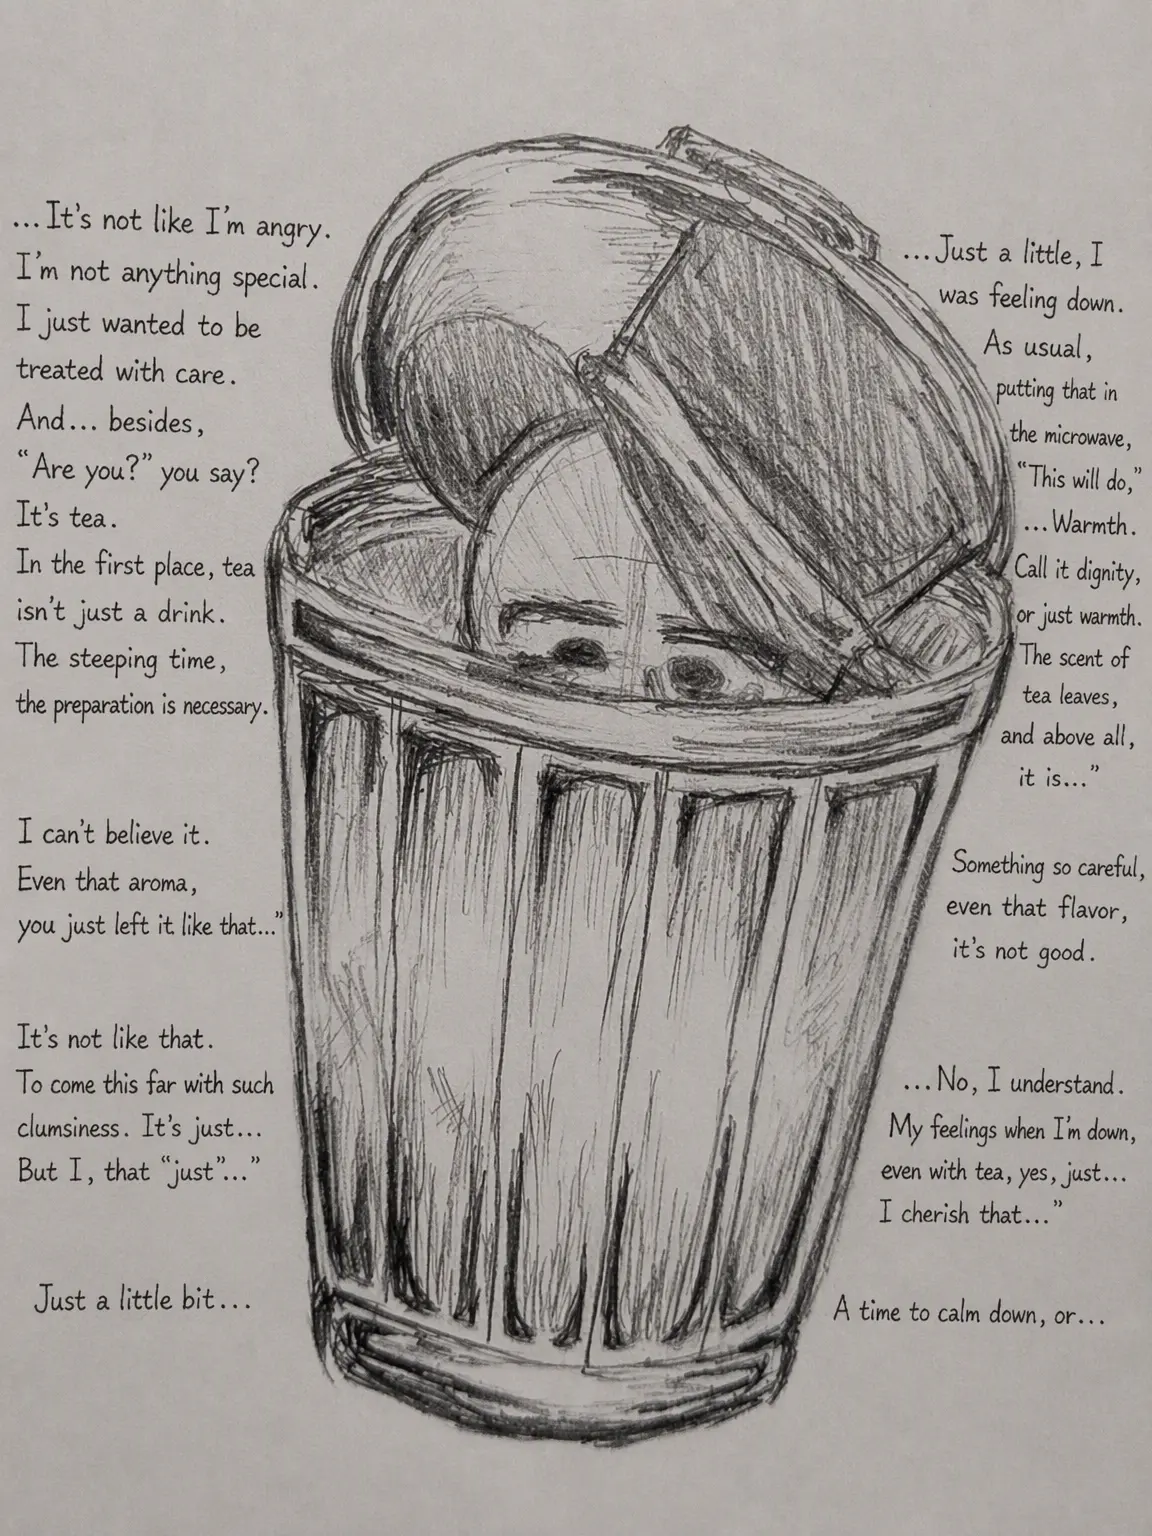 ...It's not like I'm angry.
I'm not anything special.
I just wanted to be
treated with care.
And... besides,
“Are you?” you say?
It's tea.
In the first place, tea
isn't just a drink.
The steeping time,
the preparation is necessary.
I can't believe it.
Even that aroma,
you just left it like that...”
It's not like that.
To come this far with such
clumsiness. It's just...
But I, that “just”...”
Just a little bit...
...Just a little, I
was feeling down.
As usual,
putting that in
the microwave,
“This will do,”
...Warmth.
Call it dignity,
or just warmth.
The scent of
tea leaves,
and above all,
it is...”
Something so careful,
even that flavor,
it's not good.
...No, I understand.
My feelings when I'm down,
even with tea, yes, just...
I cherish that...”
A time to calm down, or...